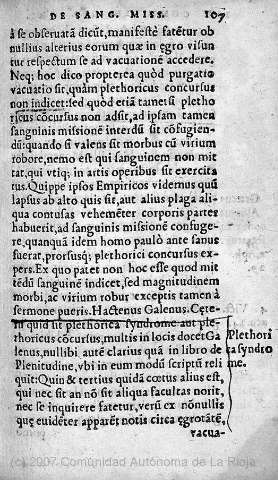 DE SANG. MISS. 107
à se obseruatā dicūt, manifestè fatētur ob
nullius alterius eorum quæ in ęgro visun
tur respectum se ad vacuationē accedere.
Neq; hoc dico propterea quòd purgatio
vacuatio sit, quàm plethoricus concursus
non indicet: sed quòd etiā tametsi pletho
ricus cōcursus non adsit, ad ipsam tamen
sanguinis missionē interdū sit cōfugien-
dū: quando si valens sit morbus cū virium
robore, nemo est qui sanguinem non mit
tat, qui vtiq; in artis operibus sit exercita
tus. Quippe ipsos Empiricos videmus quū
lapsus ab alto quis sit, aut alius plaga ali-
qua contusas vehemēter corporis partes
habuerit, ad sanguinis missionē confuge-
re, quanquā idem homo paulò ante sanus
fuerat, prorsusq; plethorici concursus ex-
pers. Ex quo patet non hoc esse quod mit
tēdū sanguinē indicet, sed magnitudinem
morbi, ac virium robur exceptis tamen à
sermone pueris. Hactenus Galenus. Cęte-
rū quid sit plethorica syndrome aut ple-
thoricus cōcursus, multis in locis docet Ga
lenus, nullibi autē clarius quā in libro de
Plenitudine, vbi in eum modū scriptū reli
quit: Quin & tertius quidā cœtus alius est,
qui nec sit an nō sit aliqua facultas norit,
nec se inquirere fatetur, verū ex nōnullis
quę euidēter apparēt notis circa ęgrotātē,
vacua-
Plethori
ca syndro
me.
(c) 2007 Comunidad Autónoma de La Rioja